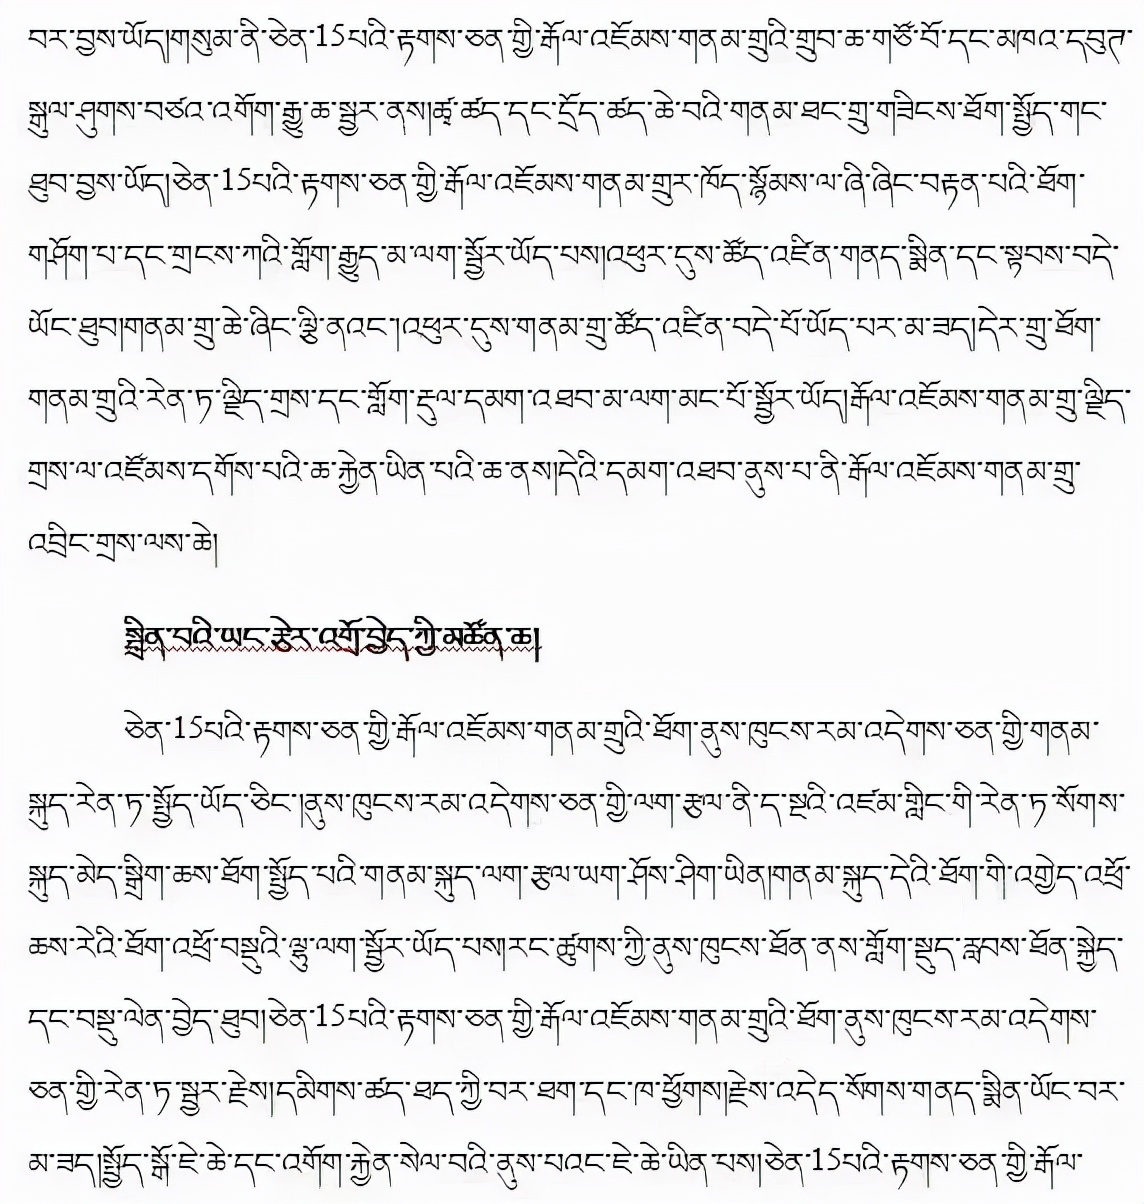 བར་བྱས་ཡོད།གསུམ་ནི་ཅེན་15པའི་རྟགས་ཅན་གྱི་རྒོལ་འཇོམས་གནམ་གྲུའི་གྲུབ་ཆ་གཙོ་བོ་དང་མཁའ་དབུཊ་
སྐུལ་ཤུགས་བཙའ་འགོག་རྒྱུ་ཆ་སྦྱར་ནས།ཚྭ་ཚད་དང་དྲོད་ཚད་ཆེ་བའི་གནམ་ཐང་གྲུ་གཟིངས་ཐོག་སྤྱོད་གང་
ཐུབ་བྱས་ཡོད།ཅེན་15པའི་རྟགས་ཅན་གྱི་རྒོལ་འཇོམས་གནམ་གྲུར་ཁོད་སྙོམས་ལ་ཞི་ཞིང་བརྟན་པའི་ཐོག་
གཤོག་པ་དང་གྲངས་ཀའི་གློག་རྒྱུད་མ་ལག་སྦྱོར་ཡོད་པས།འཕུར་དུས་ཚོད་འཛིན་གནད་སྨིན་དང་སྟབས་བདེ་
ཡོང་ཐུབ།གནམ་གྲུ་ཆེ་ཞིང་ལྕི་ནའང་།འཕུར་དུས་གནམ་གྲུ་ཚོད་འཛིན་བདེ་པོ་ཡོད་པར་མ་ཟད།དེར་གྲུ་ཐོག་
གནམ་གྲུའི་རེན་ཏ་ལྗིད་གྲས་དང་གློག་རྡུལ་དམག་འཐབ་མ་ལག་མང་པོ་སྦྱོར་ཡོད།རྒོལ་འཇོམས་གནམ་གྲུ་ལྗིད་
གྲས་ལ་འཛོམས་དགོས་པའི་ཆ་རྐྱེན་ཡིན་པའི་ཆ་ནས།དེའི་དམག་འཐབ་ནུས་པ་ནི་རྒོལ་འཇོམས་གནམ་གྲུ་
འབྲིང་གྲས་ལས་ཆེ།
སྤྲིན་པའི་ཡང་རྩེར་འགྲོ་བྱེད་ཀྱི་མཚོན་ཆ།
ཅེན་15པའི་རྟགས་ཅན་གྱི་རྒོལ་འཇོམས་གནམ་གྲུའི་ཐོག་ནུས་ཁུངས་རམ་འདེགས་ཅན་གྱི་གནམ་
སྐུད་རེན་ཏ་སྤྱོད་ཡོད་ཅིང་།ནུས་ཁུངས་རམ་འདེགས་ཅན་གྱི་ལག་རྩལ་ནི་ད་སྔའི་འཛམ་གླིང་གི་རེན་ཏ་སོགས་
སྐུད་མེད་སྒྲིག་ཆས་ཐོག་སྤྱོད་པའི་གནམ་སྐུད་ལག་རྩལ་ཡག་ཤོས་ཤིག་ཡིན།གནམ་སྐུད་དེའི་ཐོག་གི་འགྱེད་འཕྲོ་
ཆས་རེའི་ཐོག་འཕྲོ་བསྡུའི་ལྷུ་ལག་སྦྱོར་ཡོད་པས།རང་ཚུགས་ཀྱི་ནུས་ཁུངས་ཐོན་ནས་གློག་སྡུད་རླབས་ཐོན་སྐྱེད་
དང་བསྡུ་ལེན་བྱེད་ཐུབ།ཅེན་15པའི་རྟགས་ཅན་གྱི་རྒོལ་འཇོམས་གནམ་གྲུའི་ཐོག་ནུས་ཁུངས་རམ་འདེགས་
ཅན་གྱི་རེན་ཏ་སྦྱར་རྗེས།དམིགས་ཚད་ཐད་ཀྱི་བར་ཐག་དང་ཁ་ཕྱོགས།རྗེས་འདེད་སོགས་གནད་སྨིན་ཡོང་བར་
མ་ཟད།སྤྱོད་སྒོ་ཇེ་ཆེ་དང་འགོག་རྐྱེན་སེལ་བའི་ནུས་པའང་ཇེ་ཆེ་ཡིན་པས།ཅེན་15པའི་རྟགས་ཅན་གྱི་རྒོལ་